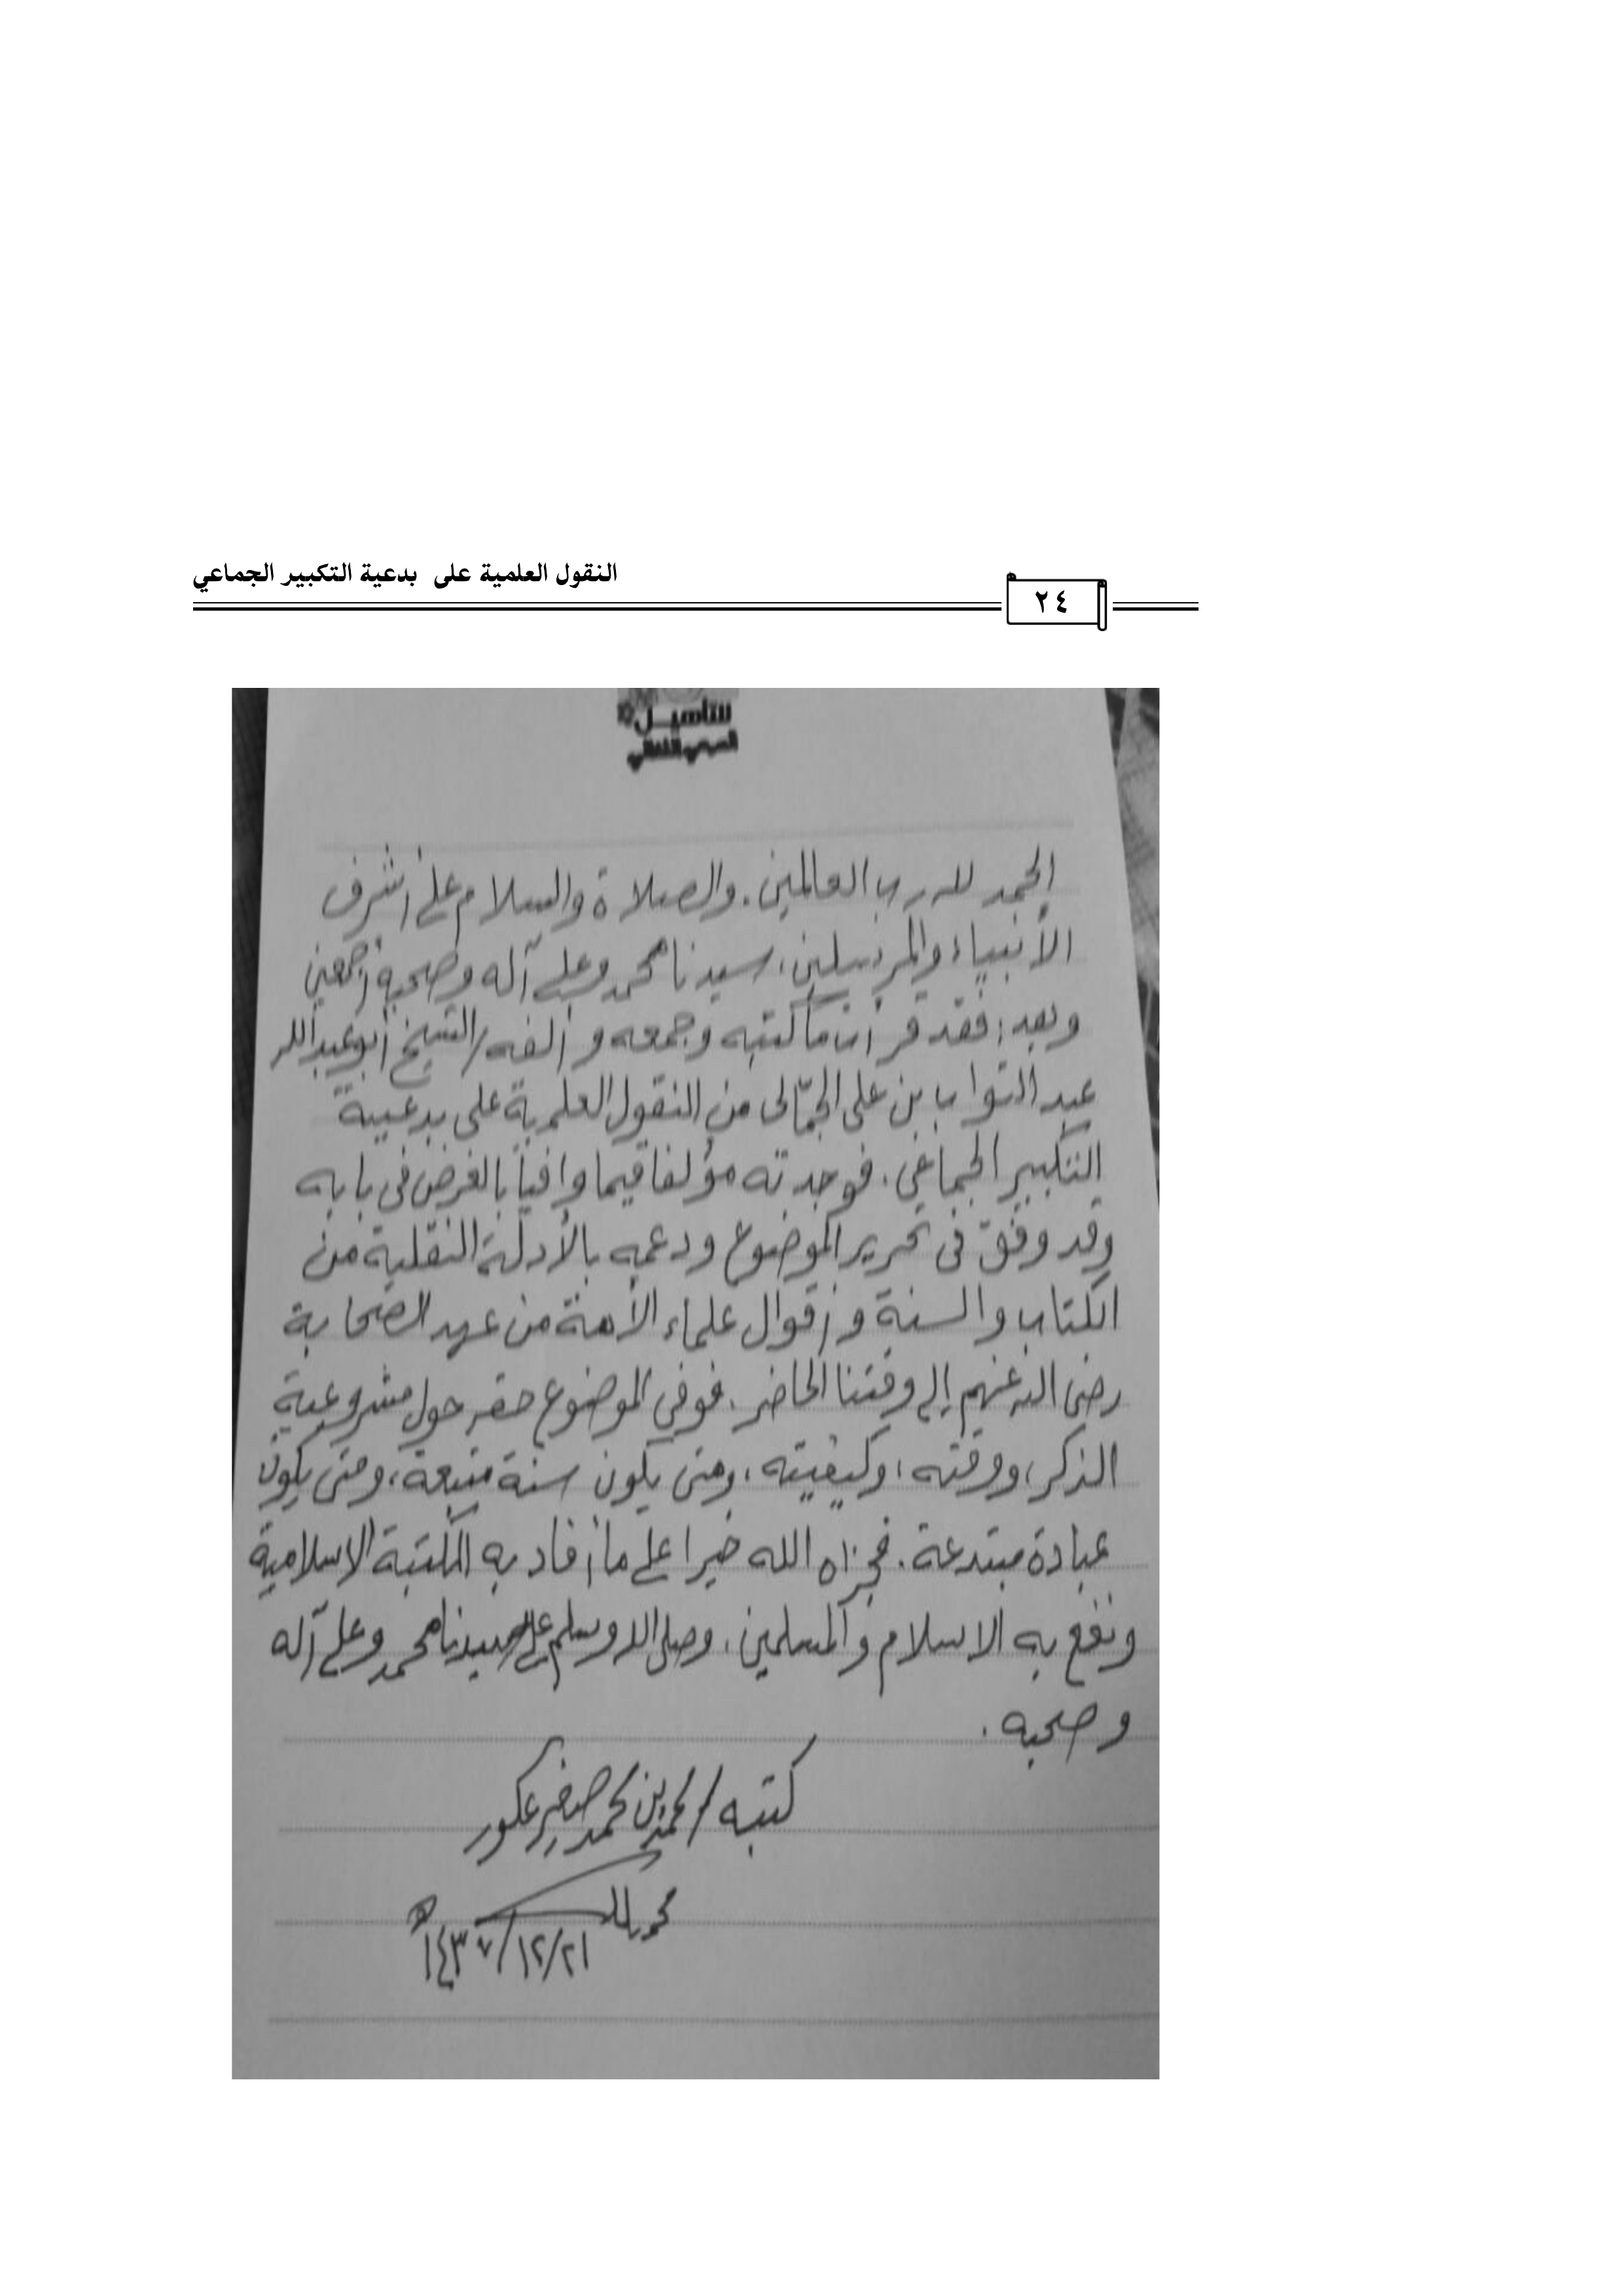 النقول العلمية على بدعية التكبير الجماعي
٢٤
للتأهيل
الحمد لله رب العالمين. والصلاة والسلام على أشرف
الأنبياء والمرسلين، سيدنا محمد وعلى آله وصحبه أجمعين
وبعد: فقد قرأت ما كتبه وجمعه وألفه/ الشيخ أبو عبد الله
عبد التواب بن على الجمّالى من النقول العلمية على بدعية
التكبير الجماعي. فوجدته مؤلفا قيما وافياً بالغرض فى بابه
وقد وفق فى تحرير الموضوع ودعمه بالأدلة النقلية من
الكتاب والسنة وأقوال علماء الأمة من عهد الصحابة
رضى الله عنهم إلى وقتنا الحاضر. فوفى الموضوع حقه حول مشروعية
الذكر، ووقته، وكيفيته، ومتى يكون سنة متبعة، ومتى يكون
عبادة مبتدعة. فجزاه الله خيرا على ما أفاد به المكتبة الاسلامية
ونفع به الاسلام والمسلمين. وصلى الله وسلم على سيدنا محمد وعلى آله
وصحبه.
كتبه / محمد بن محمد صغير عكور
١٤٣٧/١٢/٢١هـ